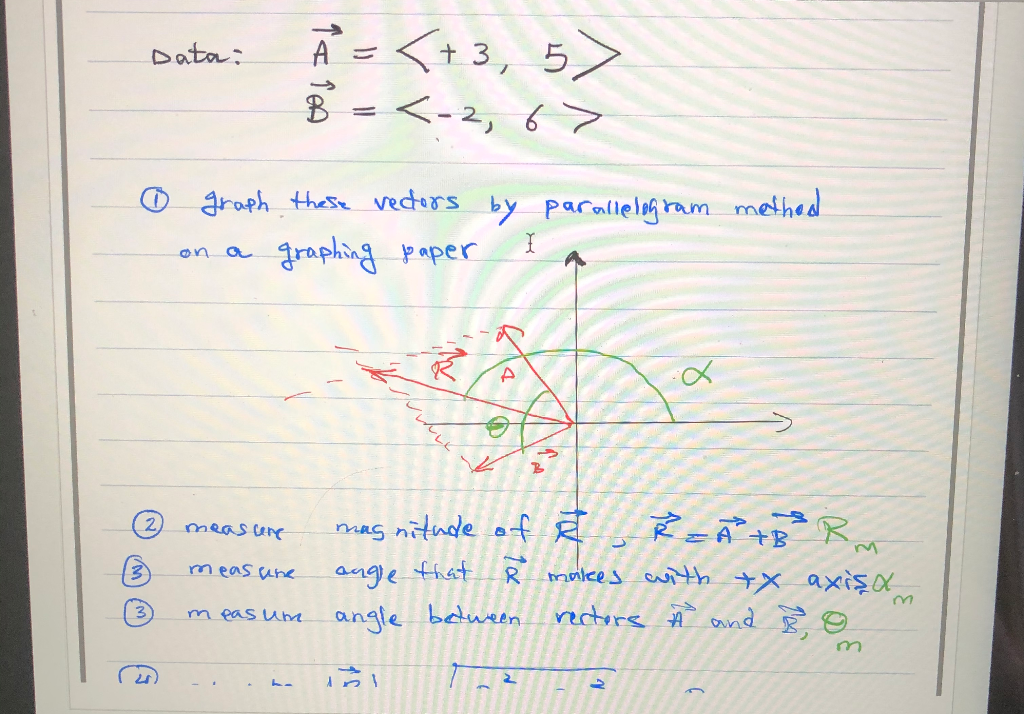 Data: A⃗ = <+3, 5>
B⃗ = <-2, 6>
① graph these vectors by parallelogram method
on a graphing paper
R⃗ A α
θ
B⃗
② measure magnitude of R⃗, R⃗ = A⃗ + B⃗ Rm
③ measure angle that R⃗ makes with +x axis αm
③ measure angle between vectors A⃗ and B⃗, θm
④